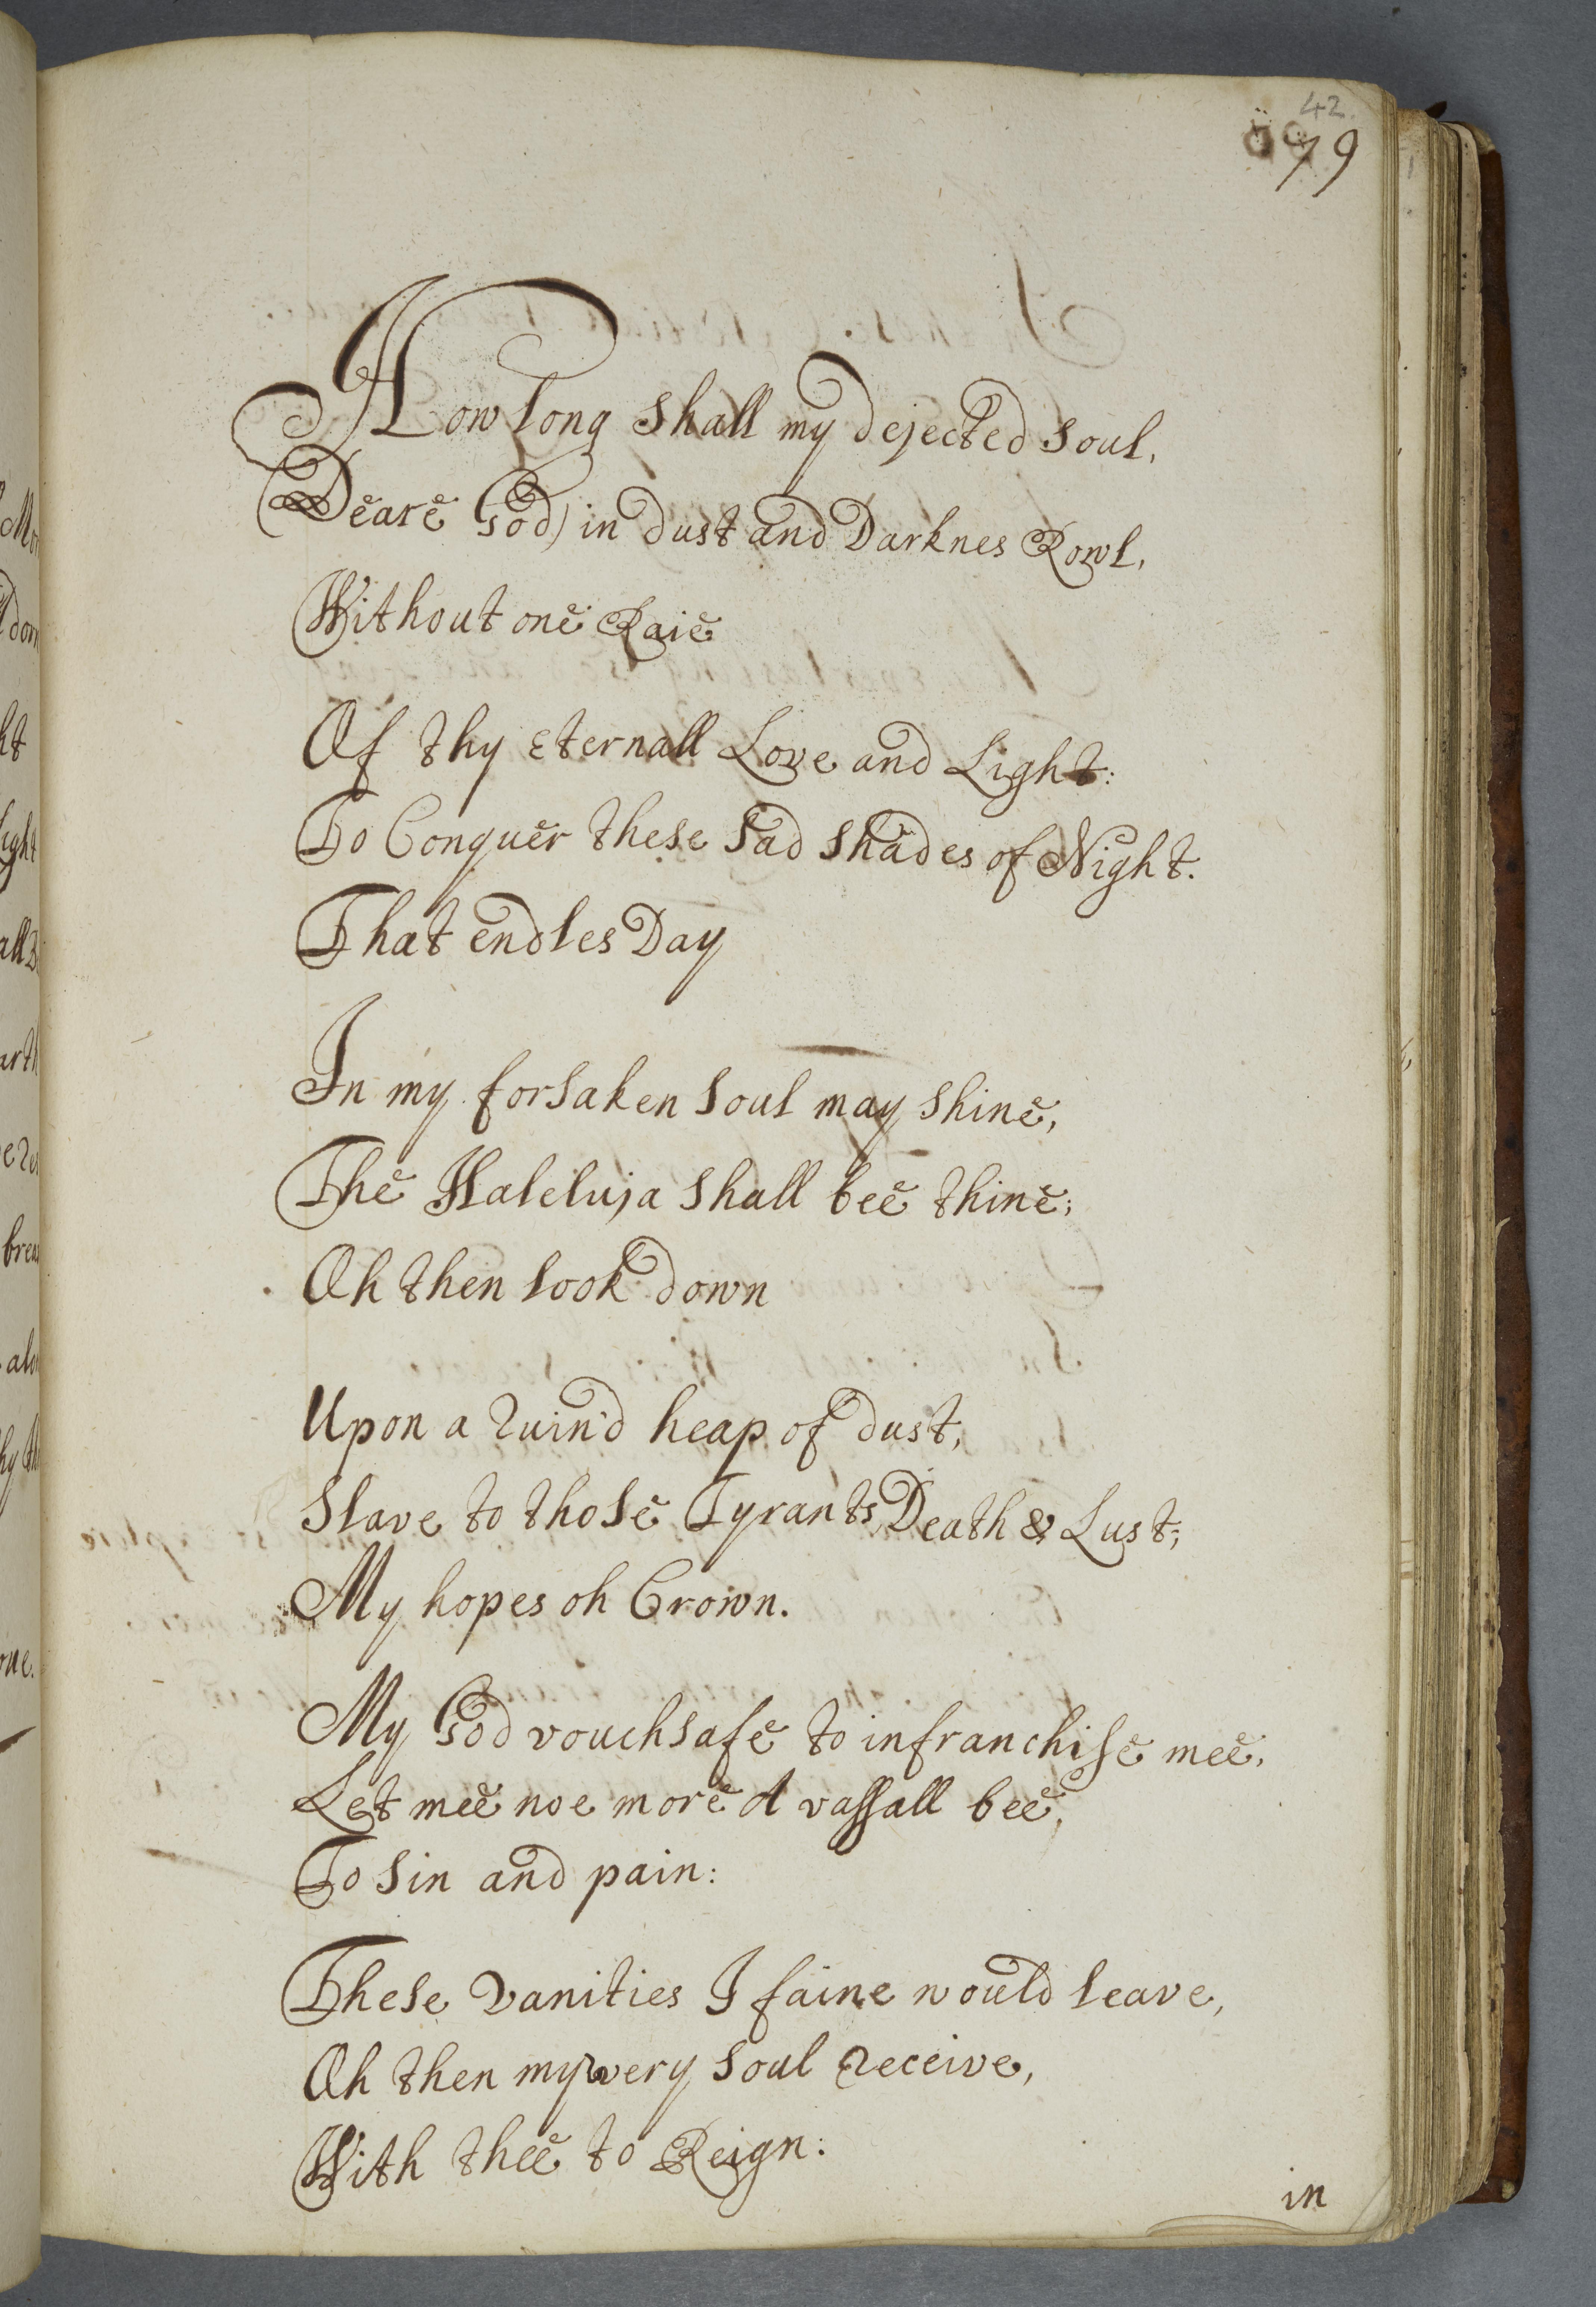 42.
79
How long shall my dejected soul,
(Deare God) in dust and Darknes Rowl,
Without one Raie
Of thy Eternall Love and Light:
To Conquer these sad shades of Night.
That endles Day
In my forsaken soul may shine,
The Haleluja shall bee thine;
Oh then look down
Upon a Ruin'd heap of dust,
Slave to those Tyrants Death & Lust;
My hopes oh Crown.
My God vouchsafe to infranchise mee,
Let mee noe more A vassall bee,
To sin and pain:
These Vanities I faine would leave,
Oh then my very soul Receive,
With thee to Reign:
in